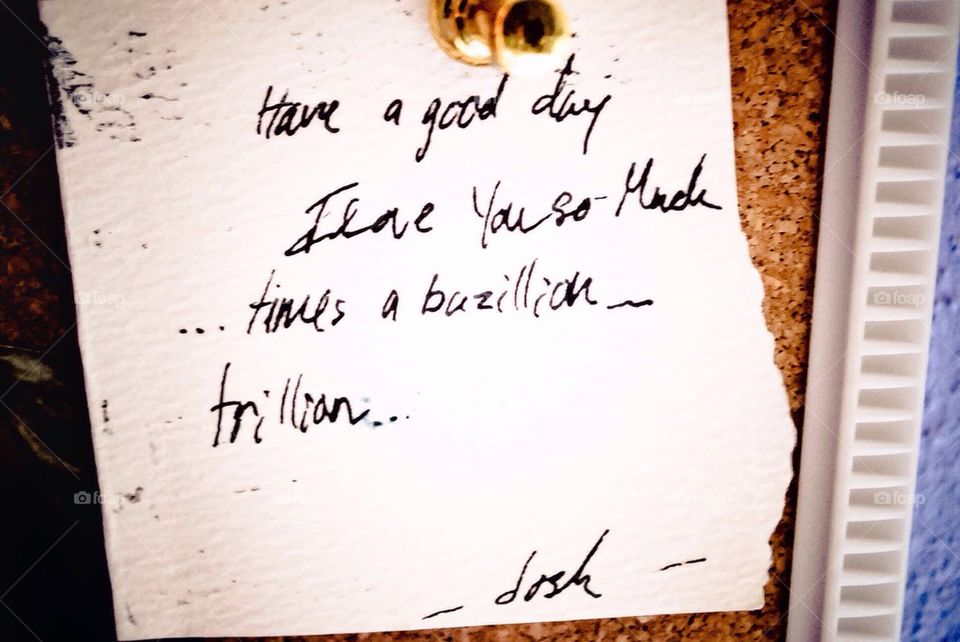 Have a good day
I love You so Much
... times a bazillion –
trillian...
– Josh –
foap
foap
foap
foap
foap
foap